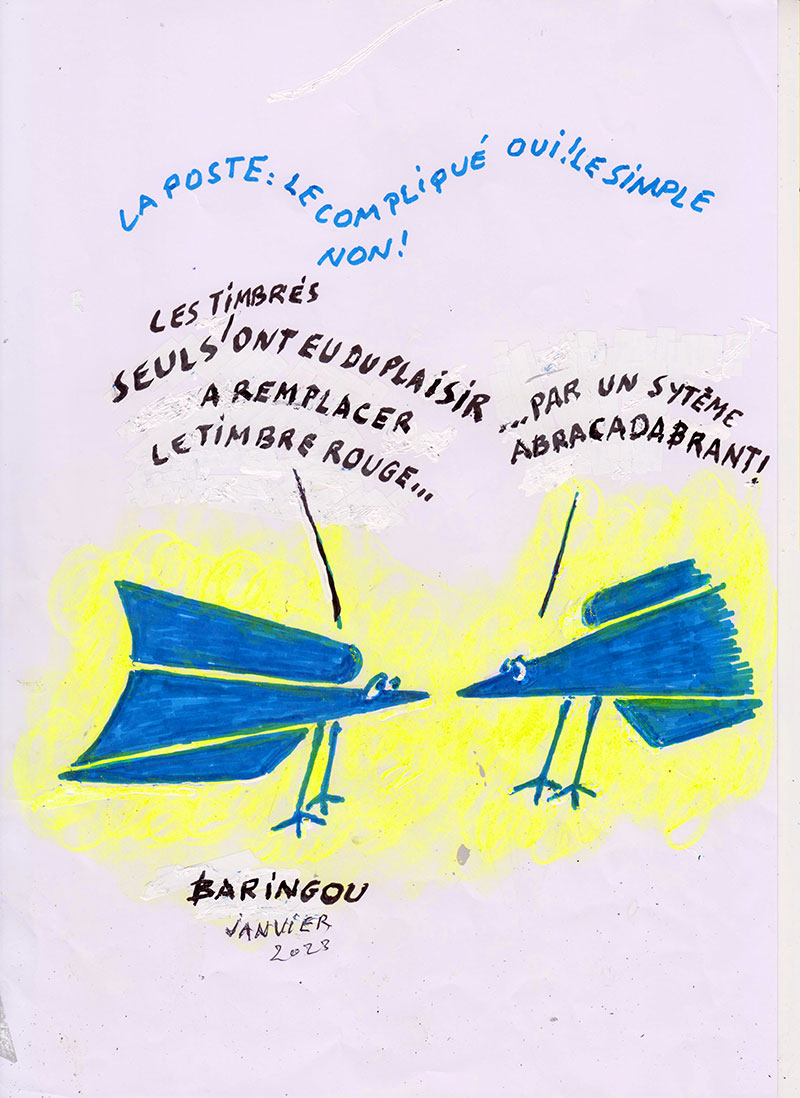 LA POSTE: LE COMPLIQUÉ OUI! LE SIMPLE
NON!
LES TIMBRÉS
SEULS'ONT EU DU PLAISIR
A REMPLACER
LE TIMBRE ROUGE...
...PAR UN SYTÈME
ABRACADABRANT!
BARINGOU
JANVIER
2023